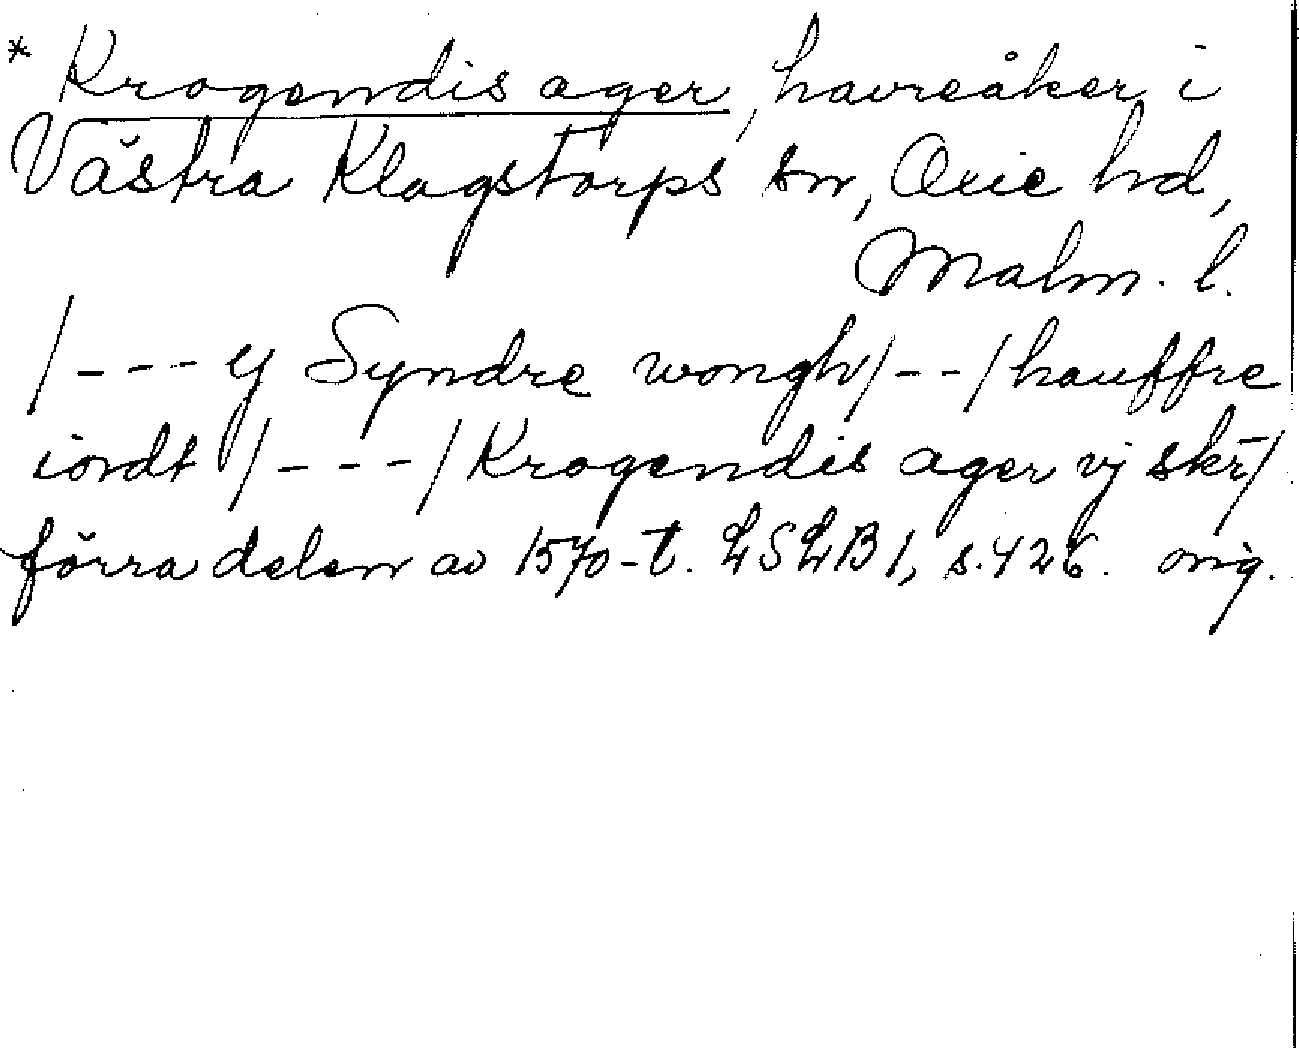 * Krogendis ager, havreåker i
Västra Klagstorps sn, Oxie hd,
Malm. l.
/--- y Syndre wongh/--/hauffre
iordt /---/ Krogendis ager vj skr̄/
förra delen av 1570-t. LSLB 1, s. 426. orig.